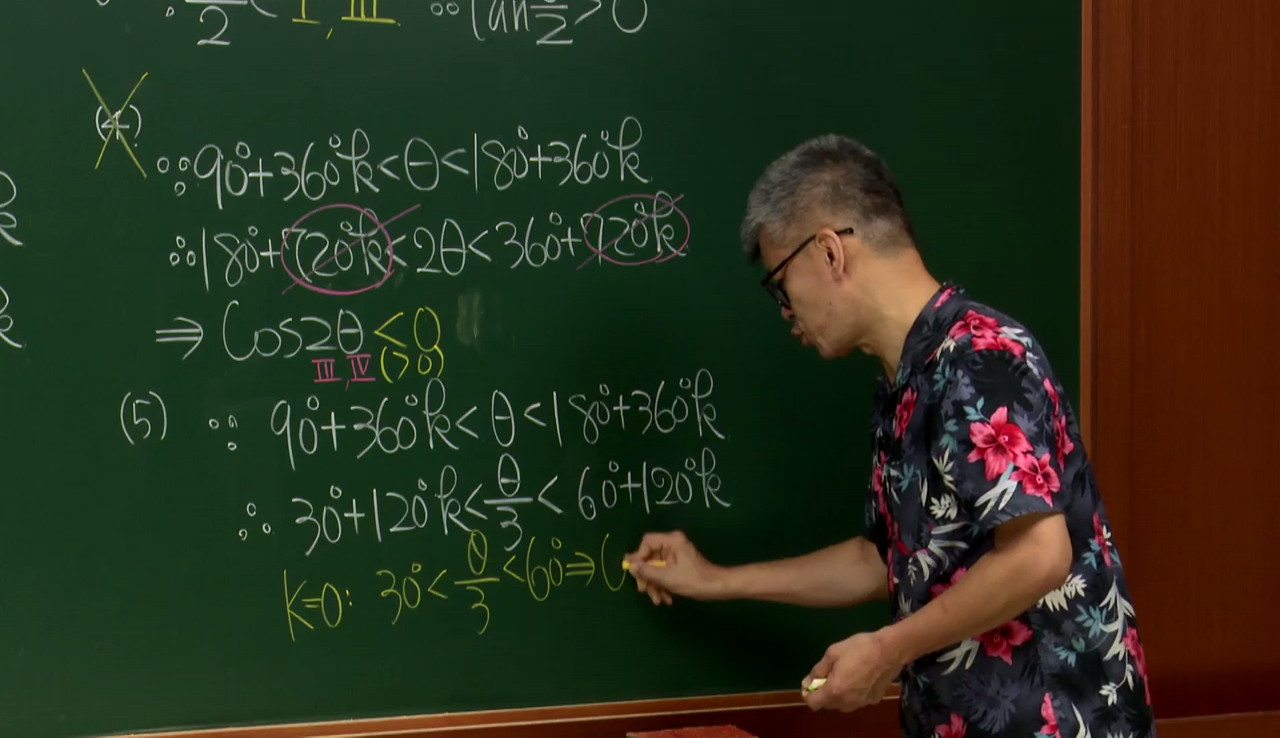 θ/2 ∈ I, III ∴ tan θ/2 > 0
(4)
∵ 90°+360°k < θ < 180°+360°k
∴ 180°+720°k < 2θ < 360°+720°k
⇒ Cos2θ < 0
III, IV (>0)
(5) ∵ 90°+360°k < θ < 180°+360°k
∴ 30°+120°k < θ/3 < 60°+120°k
k=0: 30° < θ/3 < 60° ⇒